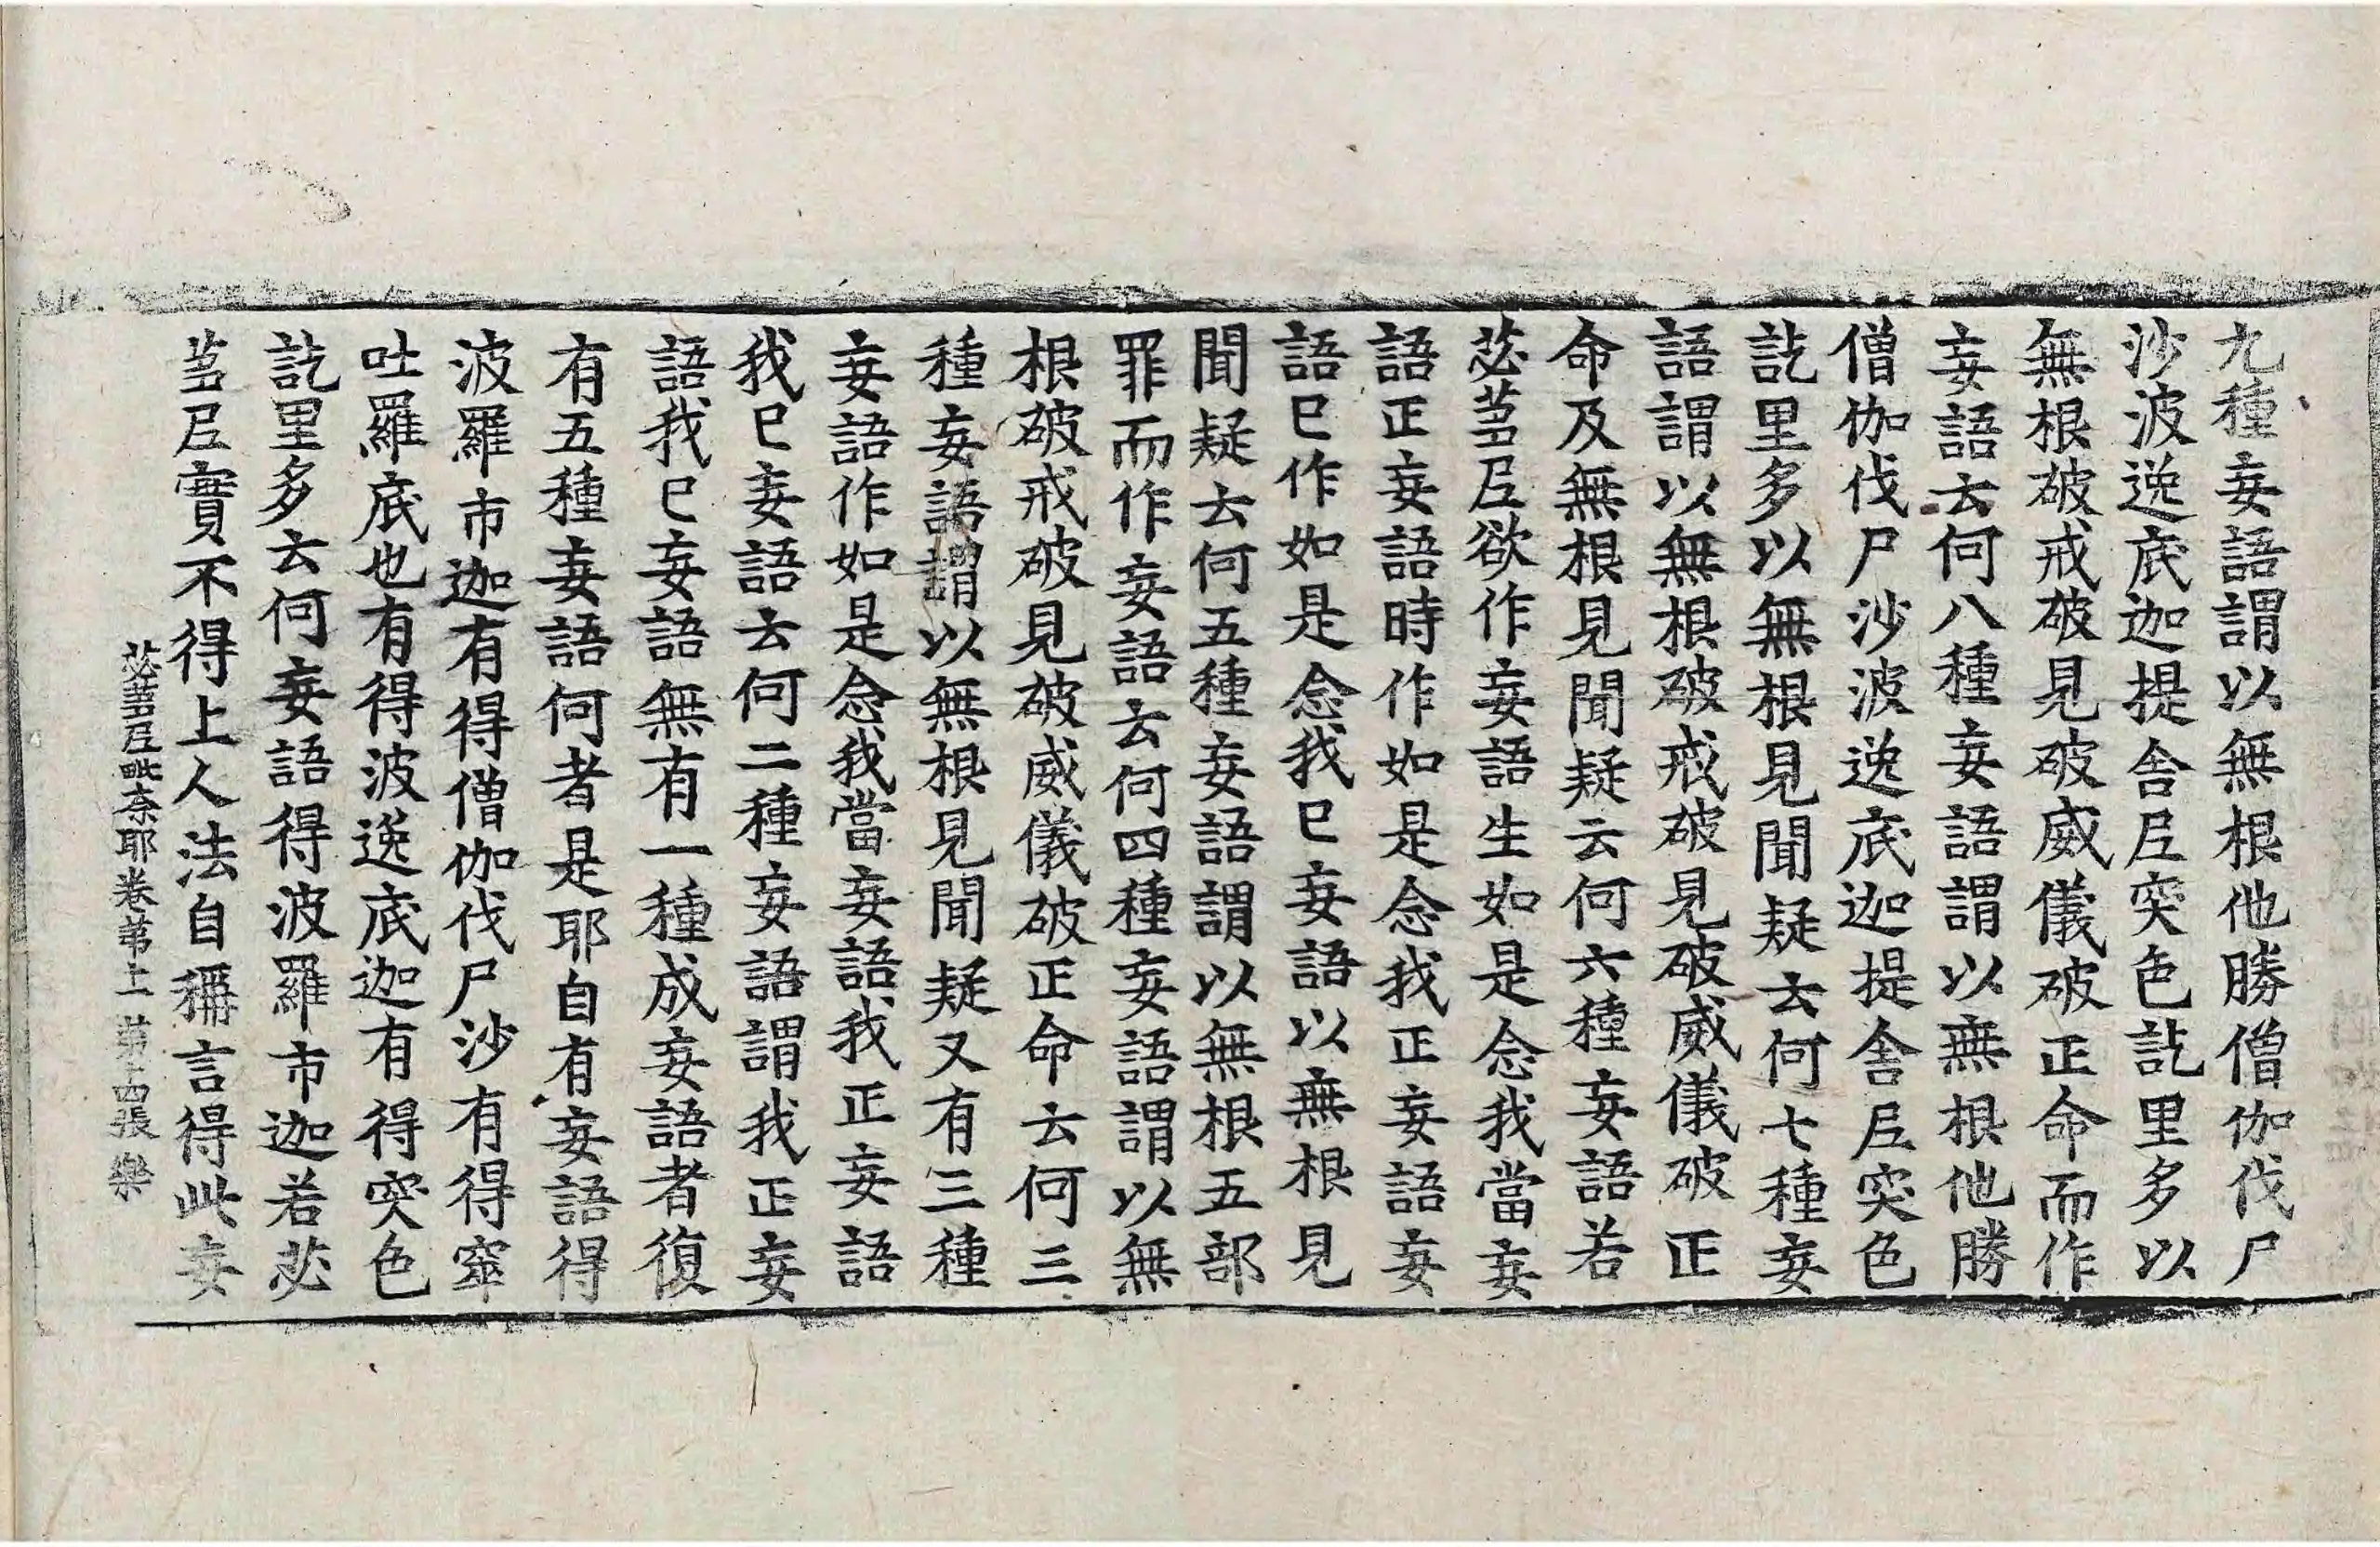 九種妄語謂以無根他勝僧伽伐尸
沙波逸底迦提舎尼突色訖里多以
無根破戒破見破威儀破正命而作
妄語云何八種妄語謂以無根他勝
僧伽伐尸沙波逸底迦提舎尼突色
訖里多以無根見聞疑云何七種妄
語謂以無根破戒破見破威儀破正
命及無根見聞疑云何六種妄語若
苾芻尼欲作妄語生如是念我當妄
語正妄語時作如是念我正妄語妄
語已作如是念我已妄語以無根見
聞疑云何五種妄語謂以無根五部
罪而作妄語云何四種妄語謂以無
根破戒破見破威儀破正命云何三
種妄語謂以無根見聞疑又有三種
妄語作如是念我當妄語我正妄語
我已妄語云何二種妄語謂我正妄
語我已妄語無有一種成妄語者復
有五種妄語何者是耶自有妄語得
波羅市迦有得僧伽伐尸沙有得窣
吐羅底也有得波逸底迦有得突色
訖里多云何妄語得波羅市迦若苾
芻尼實不得上人法自稱言得此妄
苾芻尼毗奈耶卷第二 第十四張 樂